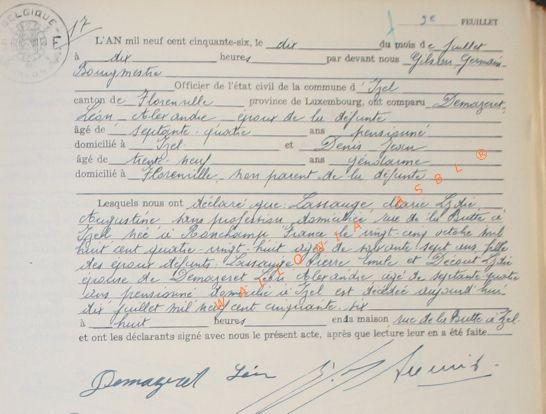 BELGIQUE
17
2e FEUILLET
L'AN mil neuf cent cinquante-six, le dix du mois de juillet
à dix heures par devant nous Gilson Germain
Bourgmestre
Officier de l'état civil de la commune d'Izel
canton de Florenville province de Luxembourg, ont comparu Demazeret
Léon Alexandre époux de la défunte
âgé de septante-quatre ans pensionné
domicilié à Izel et Denis Jean
âgé de trente-neuf ans gendarme
domicilié à Florenville, non parent de la défunte
Lesquels nous ont déclaré que Lassauge Marie Lydie
Augustine sans profession domiciliée rue de la Butte à
Izel née à Ronchamp France le vingt-cinq octobre mil
huit cent quatre-vingt-huit âgée de soixante sept ans fille
des époux défunts Lassauge Pierre Emile et Lydie
épouse de Demazeret Léon Alexandre âgé de septante quatre
ans pensionné domicilié à Izel est décédée aujourd'hui
dix juillet mil neuf cent cinquante-six
à huit heures en sa maison rue de la Butte à Izel
et ont les déclarants signé avec nous le présent acte, après que lecture leur en a été faite.
Demazeret Léon
WALLONIA ASBL ®